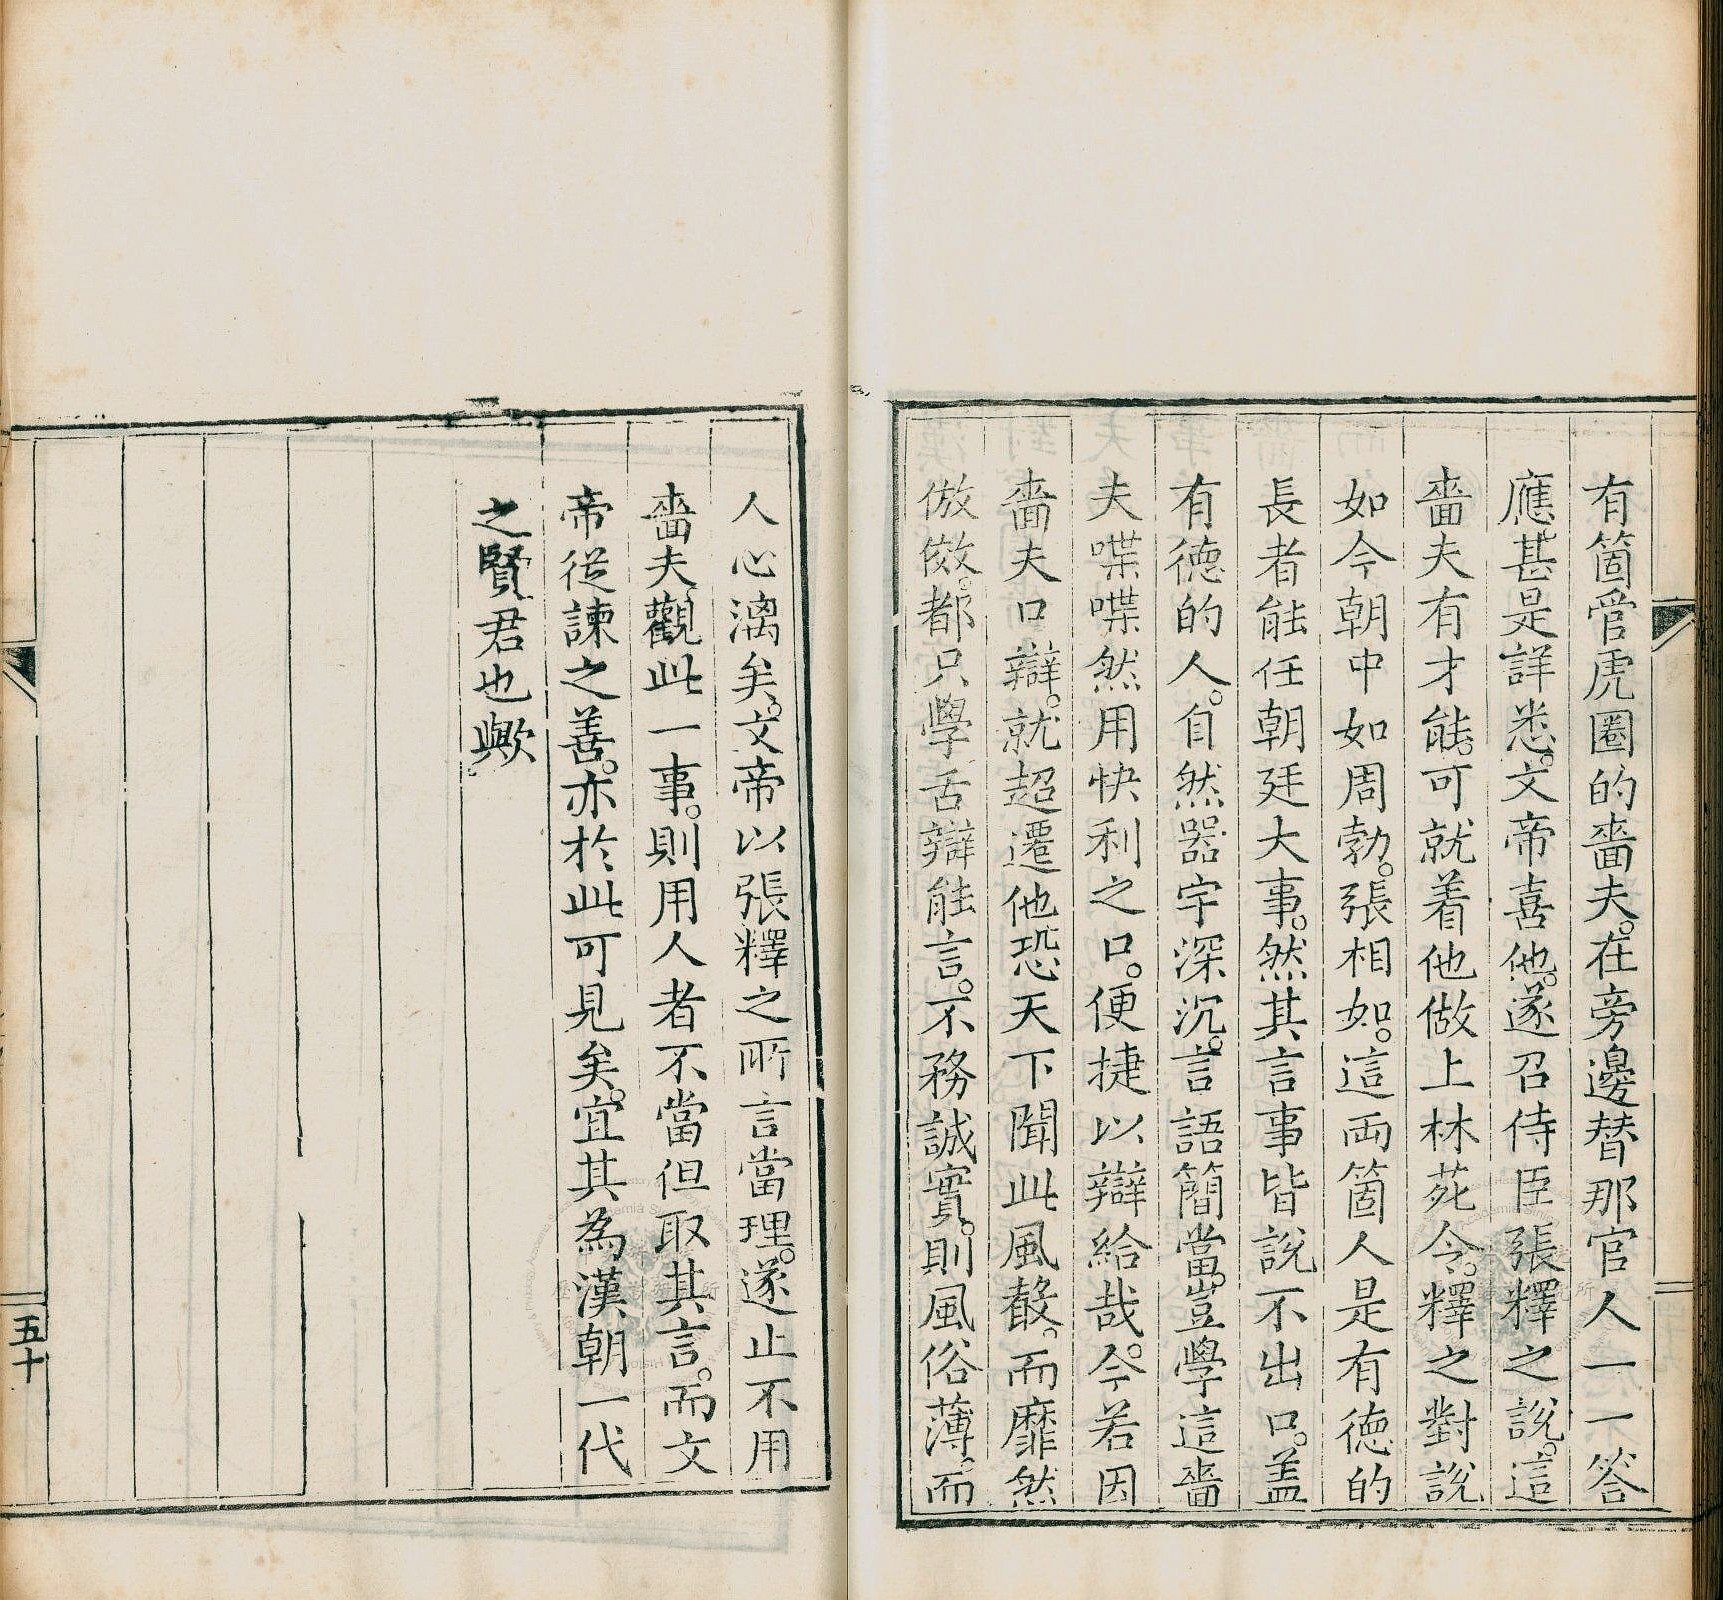 有箇管虎圈的嗇夫。在旁邊替那官人一一答
應。甚是詳悉。文帝喜他。遂召侍臣張釋之說。這
嗇夫有才能。可就着他做上林苑令。釋之對說
如今朝中如周勃。張相如。這兩箇人是有德的
長者能任朝廷大事。然其言事皆說不出口。盖
有德的人。自然器宇深沉。言語簡當。豈學這嗇
夫喋喋然用快利之口。便捷以辯給哉。今若因
嗇夫口辯。就超遷他恐天下聞此風聲。而靡然
倣傚。都只學舌辯能言。不務誠實。則風俗薄。而
人心漓矣。文帝以張釋之所言當理。遂止不用
嗇夫觀此一事。則用人者不當但取其言。而文
帝從諫之善。亦於此可見矣。宜其為漢朝一代
之賢君也歟。
五十